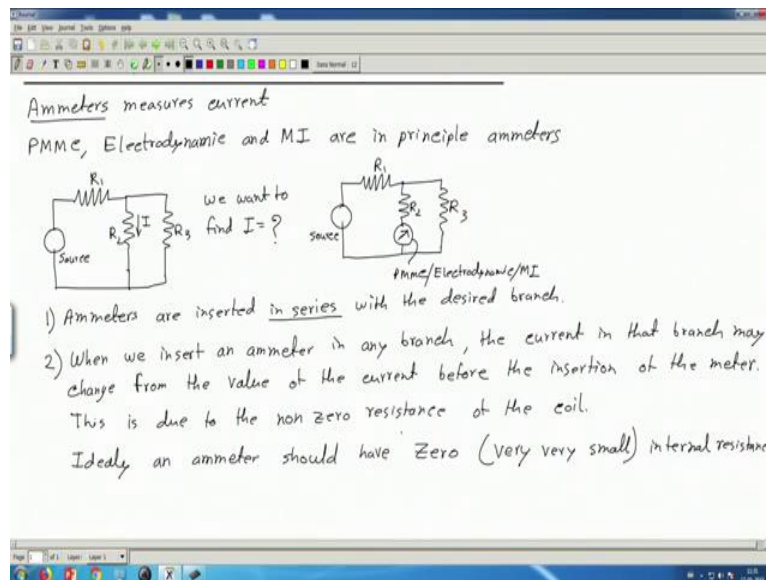 Ammeters measures current
PMMC, Electrodynamic and MI are in principle ammeters
R1
R2
I
R3
Source
we want to
find I = ?
R1
R2
R3
Source
PMMC/Electrodynamic/MI
1) Ammeters are inserted in series with the desired branch.
2) When we insert an ammeter in any branch, the current in that branch may
change from the value of the current before the insertion of the meter.
This is due to the non zero resistance of the coil.
Idealy an ammeter should have Zero (very very small) internal resistan